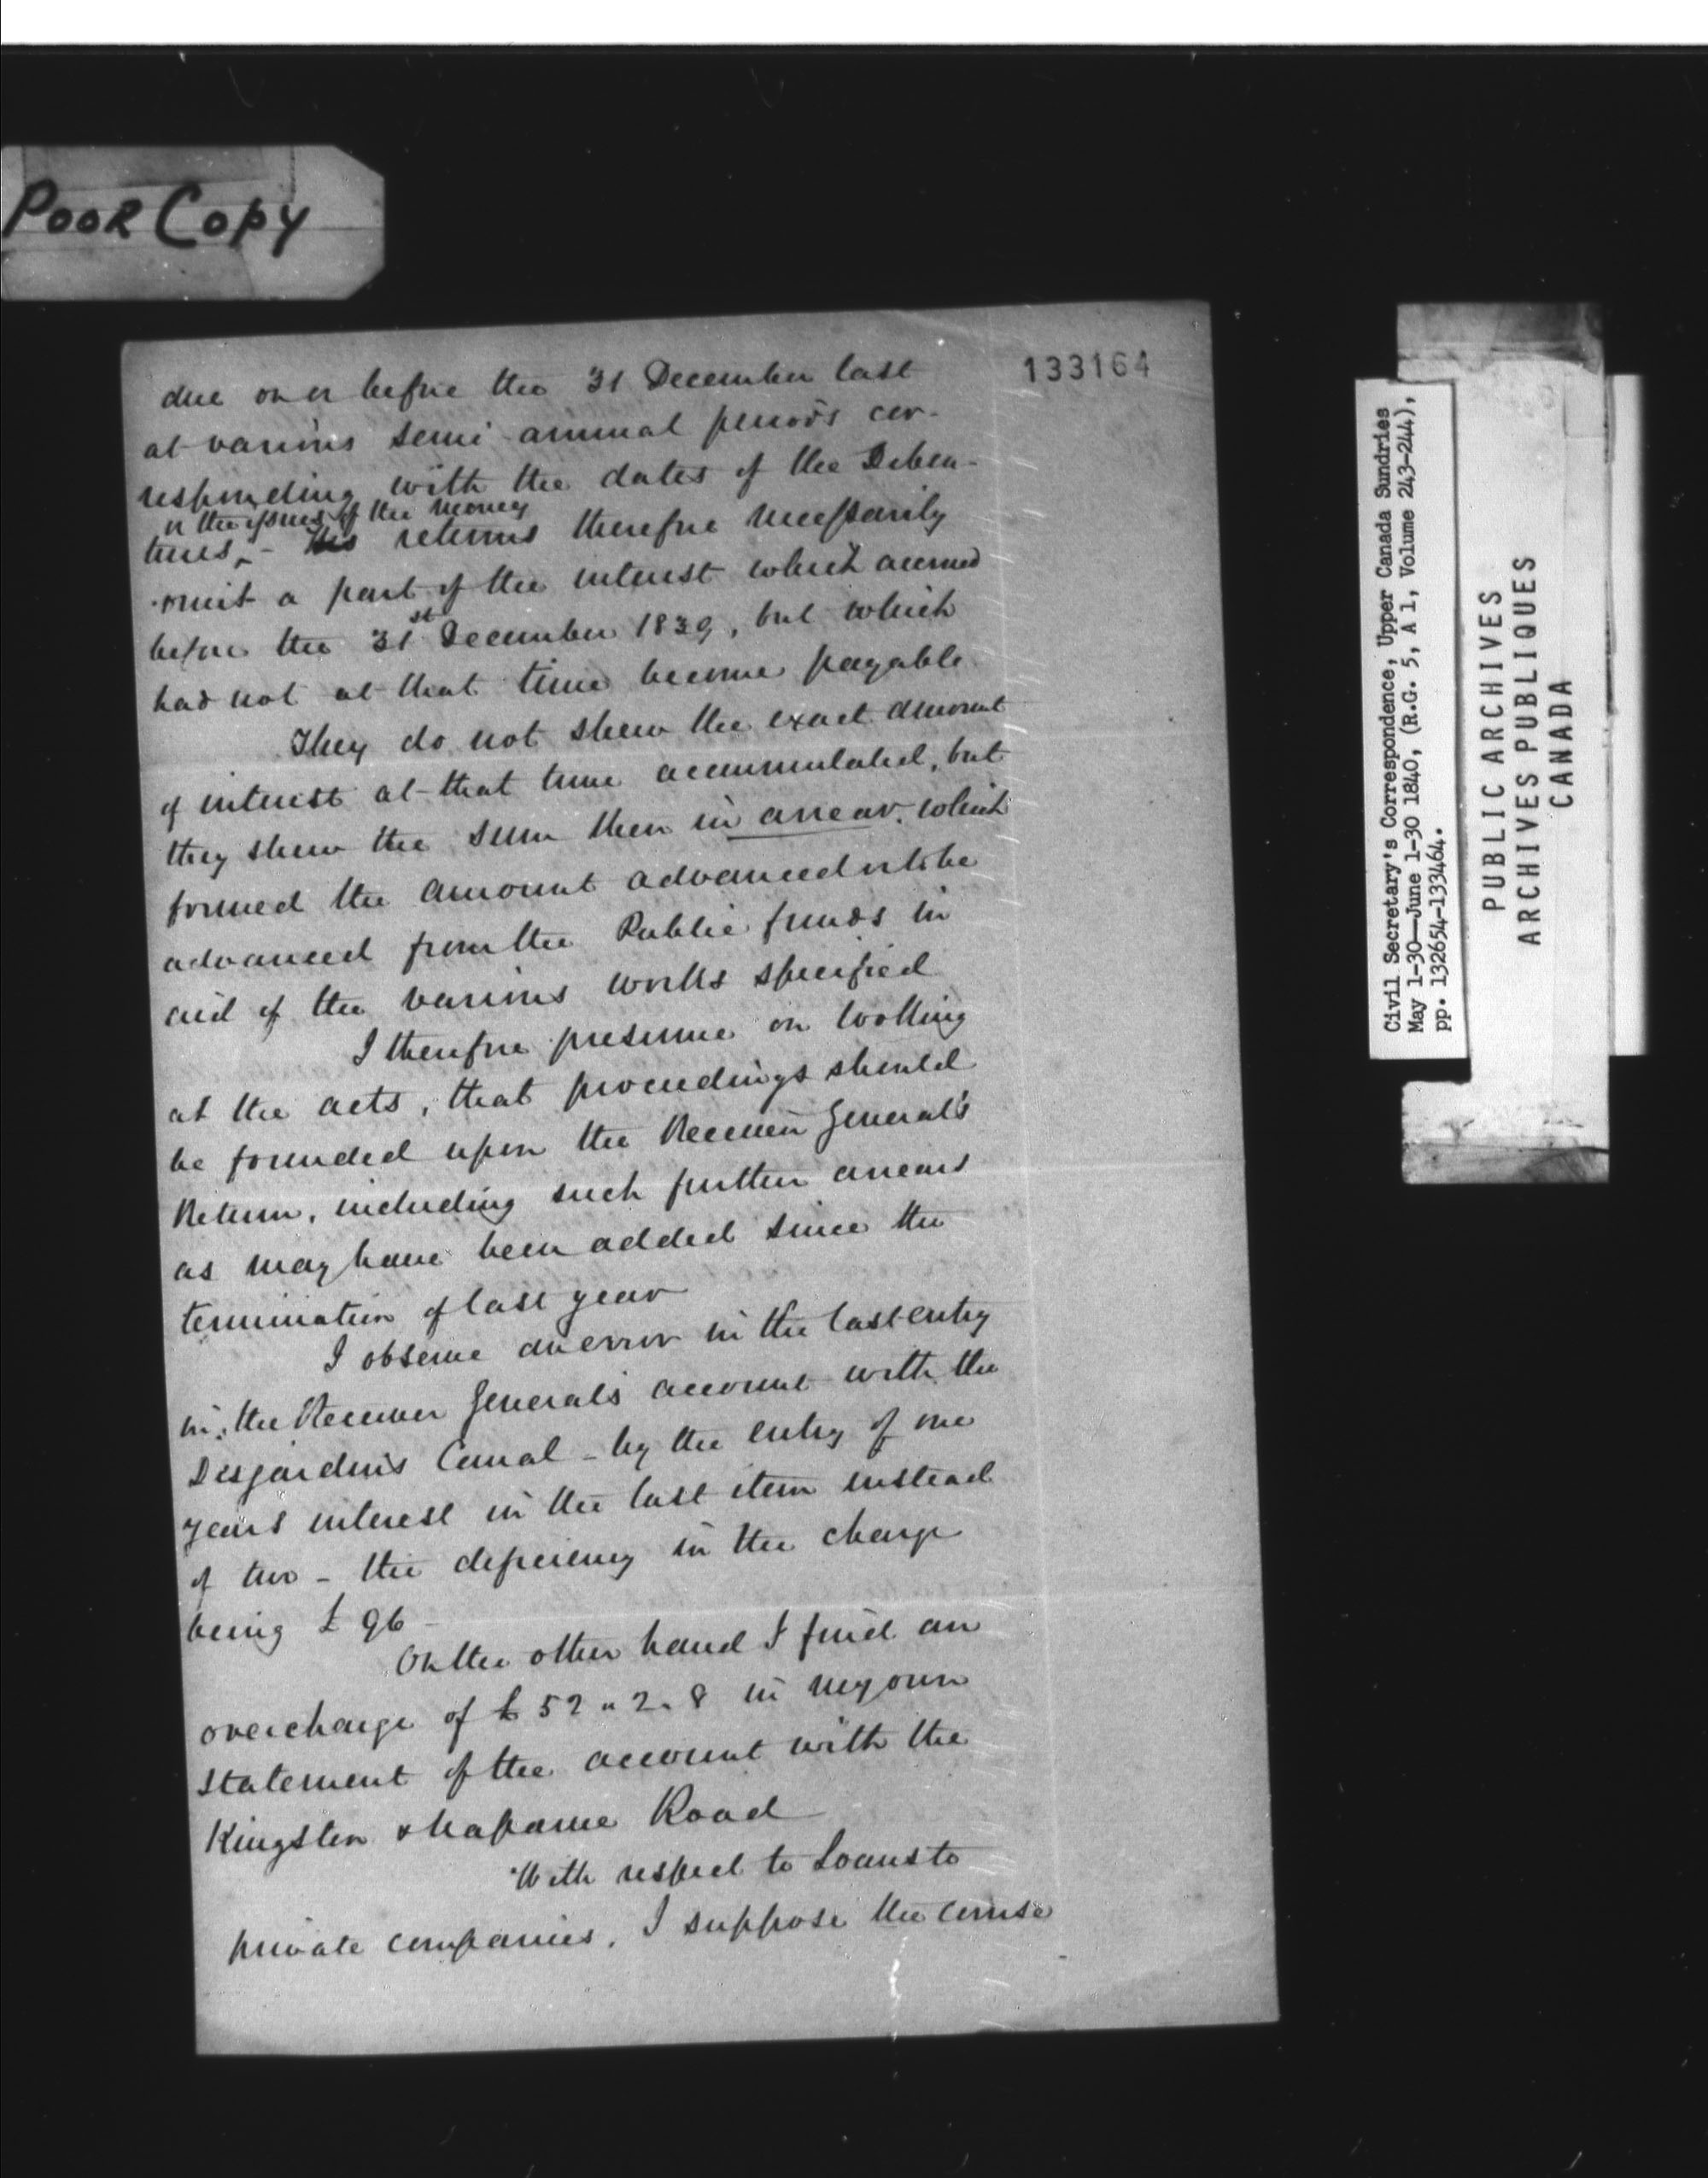 Poor Copy
133164
due on or before the 31 December last
at various semi-annual periods cor-
responding with the dates of the Deben-
or the issues of the money
tures, - His returns therefore necessarily
omit a part of the interest which accrued
before the 31st December 1839, but which
had not at that time become payable
They do not shew the exact amount
of interest at that time accumulated, but
they shew the sum then in arrear, which
formed the amount advanced or to be
advanced from the Public funds in
aid of the various works specified
I therefore presume on looking
at the acts, that proceedings should
be founded upon the Receiver General's
Return, including such further arrears
as may have been added since the
termination of last year
I observe an error in the last entry
in the Receiver General's account with the
Desjardins Canal - by the entry of one
years interest in the last item instead
of two - the deficiency in the charge
being £96 -
On the other hand I find an
overcharge of £52 " 2 . 8 in my own
statement of the account with the
Kingston & Napanee Road
With respect to Loans to
private companies, I suppose the course
Civil Secretary's Correspondence, Upper Canada Sundries
May 1-30—June 1-30 1840, (R.G. 5, A 1, Volume 243-244),
pp. 132654-133464.
PUBLIC ARCHIVES
ARCHIVES PUBLIQUES
CANADA